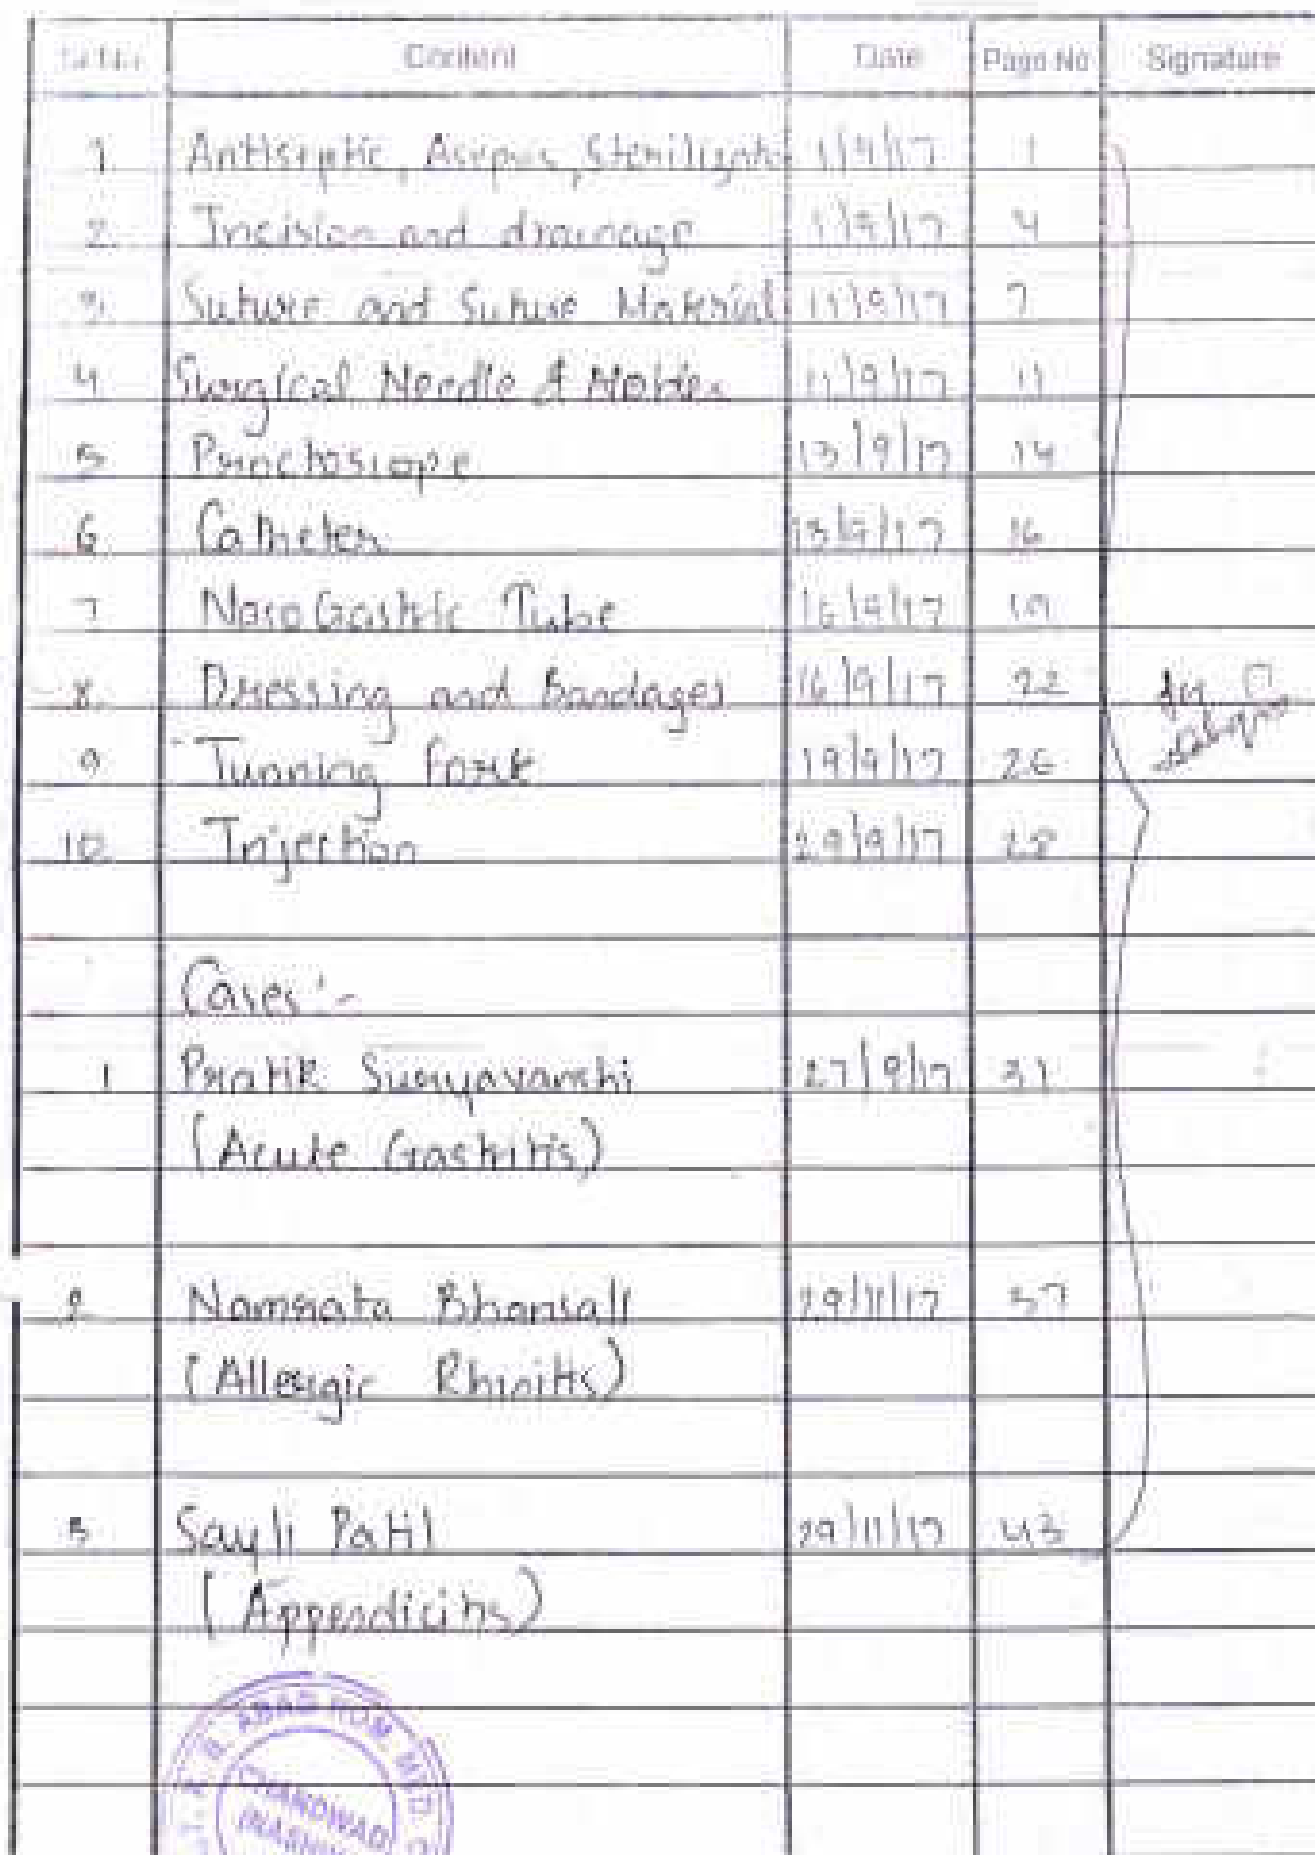 Sr.No. Content Date Page No Signature
1. Antiseptic, Asepsis, Sterilizat 1/9/17 1
2. Incision and drainage 1/9/17 4
3. Suture and Suture Material 11/9/17 7
4 Surgical Needle & Holder 11/9/17 11
5 Proctoscope 13/9/17 14
6 Catheter 13/9/17 16
7 NasoGastric Tube 16/9/17 19
8. Dressing and Bandages 16/9/17 22
9 Tunning fork 19/9/17 26
10 Injection 29/9/17 28
Cases :-
1 Pratik Suryavanshi 27/9/17 31
(Acute Gastritis)
2 Namrata Bhansali 29/11/17 37
(Allergic Rhinitis)
3 Sayli Patil 29/11/17 43
(Appendicitis)
B. ABAD HOM. MED. C
CHANDWAD
(NASHIK